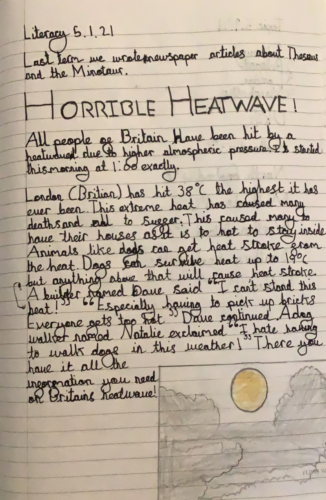 Literacy 5.1.21
Last term we wrote newspaper articles about Theseus
and the Minotaur.
HORRIBLE HEATWAVE!
All people of Britain Have been hit by a
heatwave due to higher atmospheric pressure. It started
this morning at 1:00 exactly.
London (Britian) has hit 38°C the highest it has
ever been. This extreme heat has caused many
deaths and to sugger. This caused many to
have their houses as it is to hot to stay inside
Animals like dogs can get heat stroke from
the heat. Dogs can survive heat up to 19°c
but anything above that will cause heat stroke.
A builder named Dave said "I cant stand this
heat!" "Especially having to pick up bricks
Everyone gets too hot" Dave continued. A dog
walker named Natalie exclaimed "I hate having
to walk dogs in this weather!" There you
have it all the
information you need
on Britains heatwave!